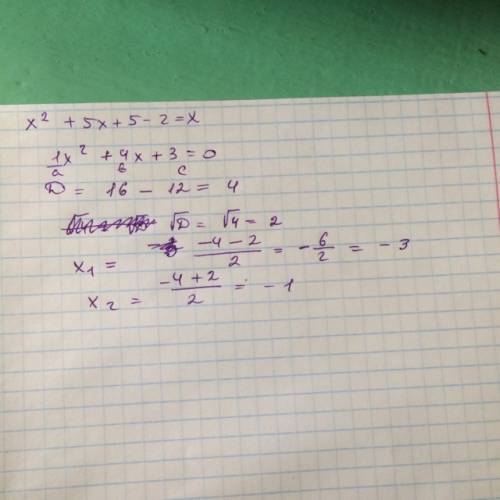 x² + 5x + 5 - 2 = x
1x² + 4x + 3 = 0
a в c
D = 16 - 12 = 4
√D = √4 = 2
x₁ = (-4 - 2)/2 = -6/2 = -3
x₂ = (-4 + 2)/2 = -1